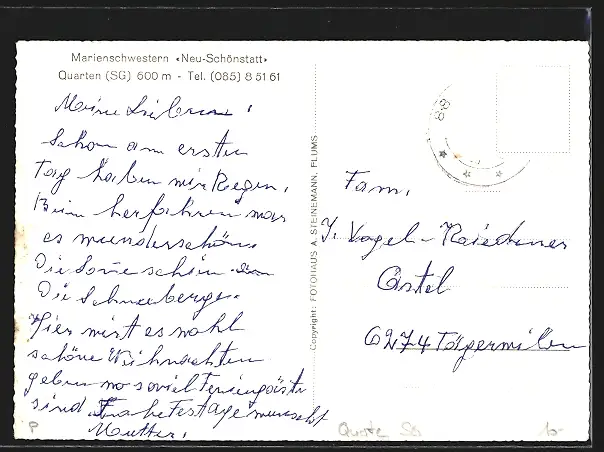 Marienschwestern «Neu-Schönstatt»
Quarten (SG) 600 m - Tel. (085) 8 51 61
Meine Lieben!
Schon am ersten
Tag haben wir Regen,
Beim herfahren war
es wunderschön
Die Sonne schien
Die Schneeberge.
Hier wirt es wohl
schöne Weihnachten
geben wo soviel Feriengäste
sind. Frohe Festage wünscht
Mutter.
Copyright: FOTOHAUS A. STEINEMANN, FLUMS
Fam.
J. Vogel-
Castel
6274 Tägerwilen
P